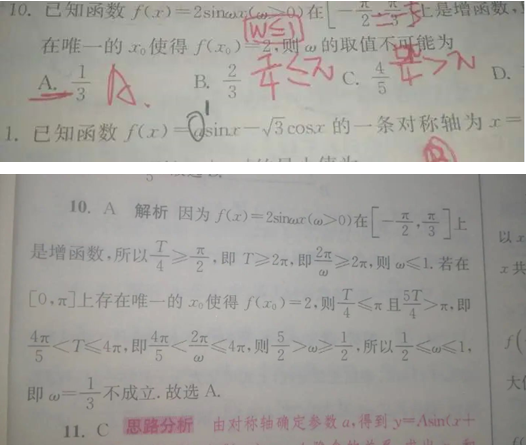 10. 已知函数 f(x)=2sinωx(ω>0)在[-π/2, π/3]上是增函数,
在唯一的 x₀ 使得 f(x₀)=2,则 ω 的取值不可能为
W≤1
A. 1/3 B. 2/3 C. 4/5 D.
A. T/4≤π >π
1. 已知函数 f(x)=asinx-√3cosx 的一条对称轴为 x=
10. A 解析 因为 f(x)=2sinωx(ω>0)在[-π/2, π/3]上
是增函数,所以 T/4≥π/2,即 T≥2π,即 2π/ω≥2π,则 ω≤1. 若在
[0,π]上存在唯一的 x₀ 使得 f(x₀)=2,则 T/4≤π 且 5T/4>π,即
4π/5<T≤4π,即 4π/5<2π/ω≤4π,则 5/2>ω≥1/2,所以 1/2≤ω≤1,
即 ω=1/3 不成立.故选 A.
11. C 思路分析 由对称轴确定参数 a,得到 y=Asin(x+
以
x 共
f(
大